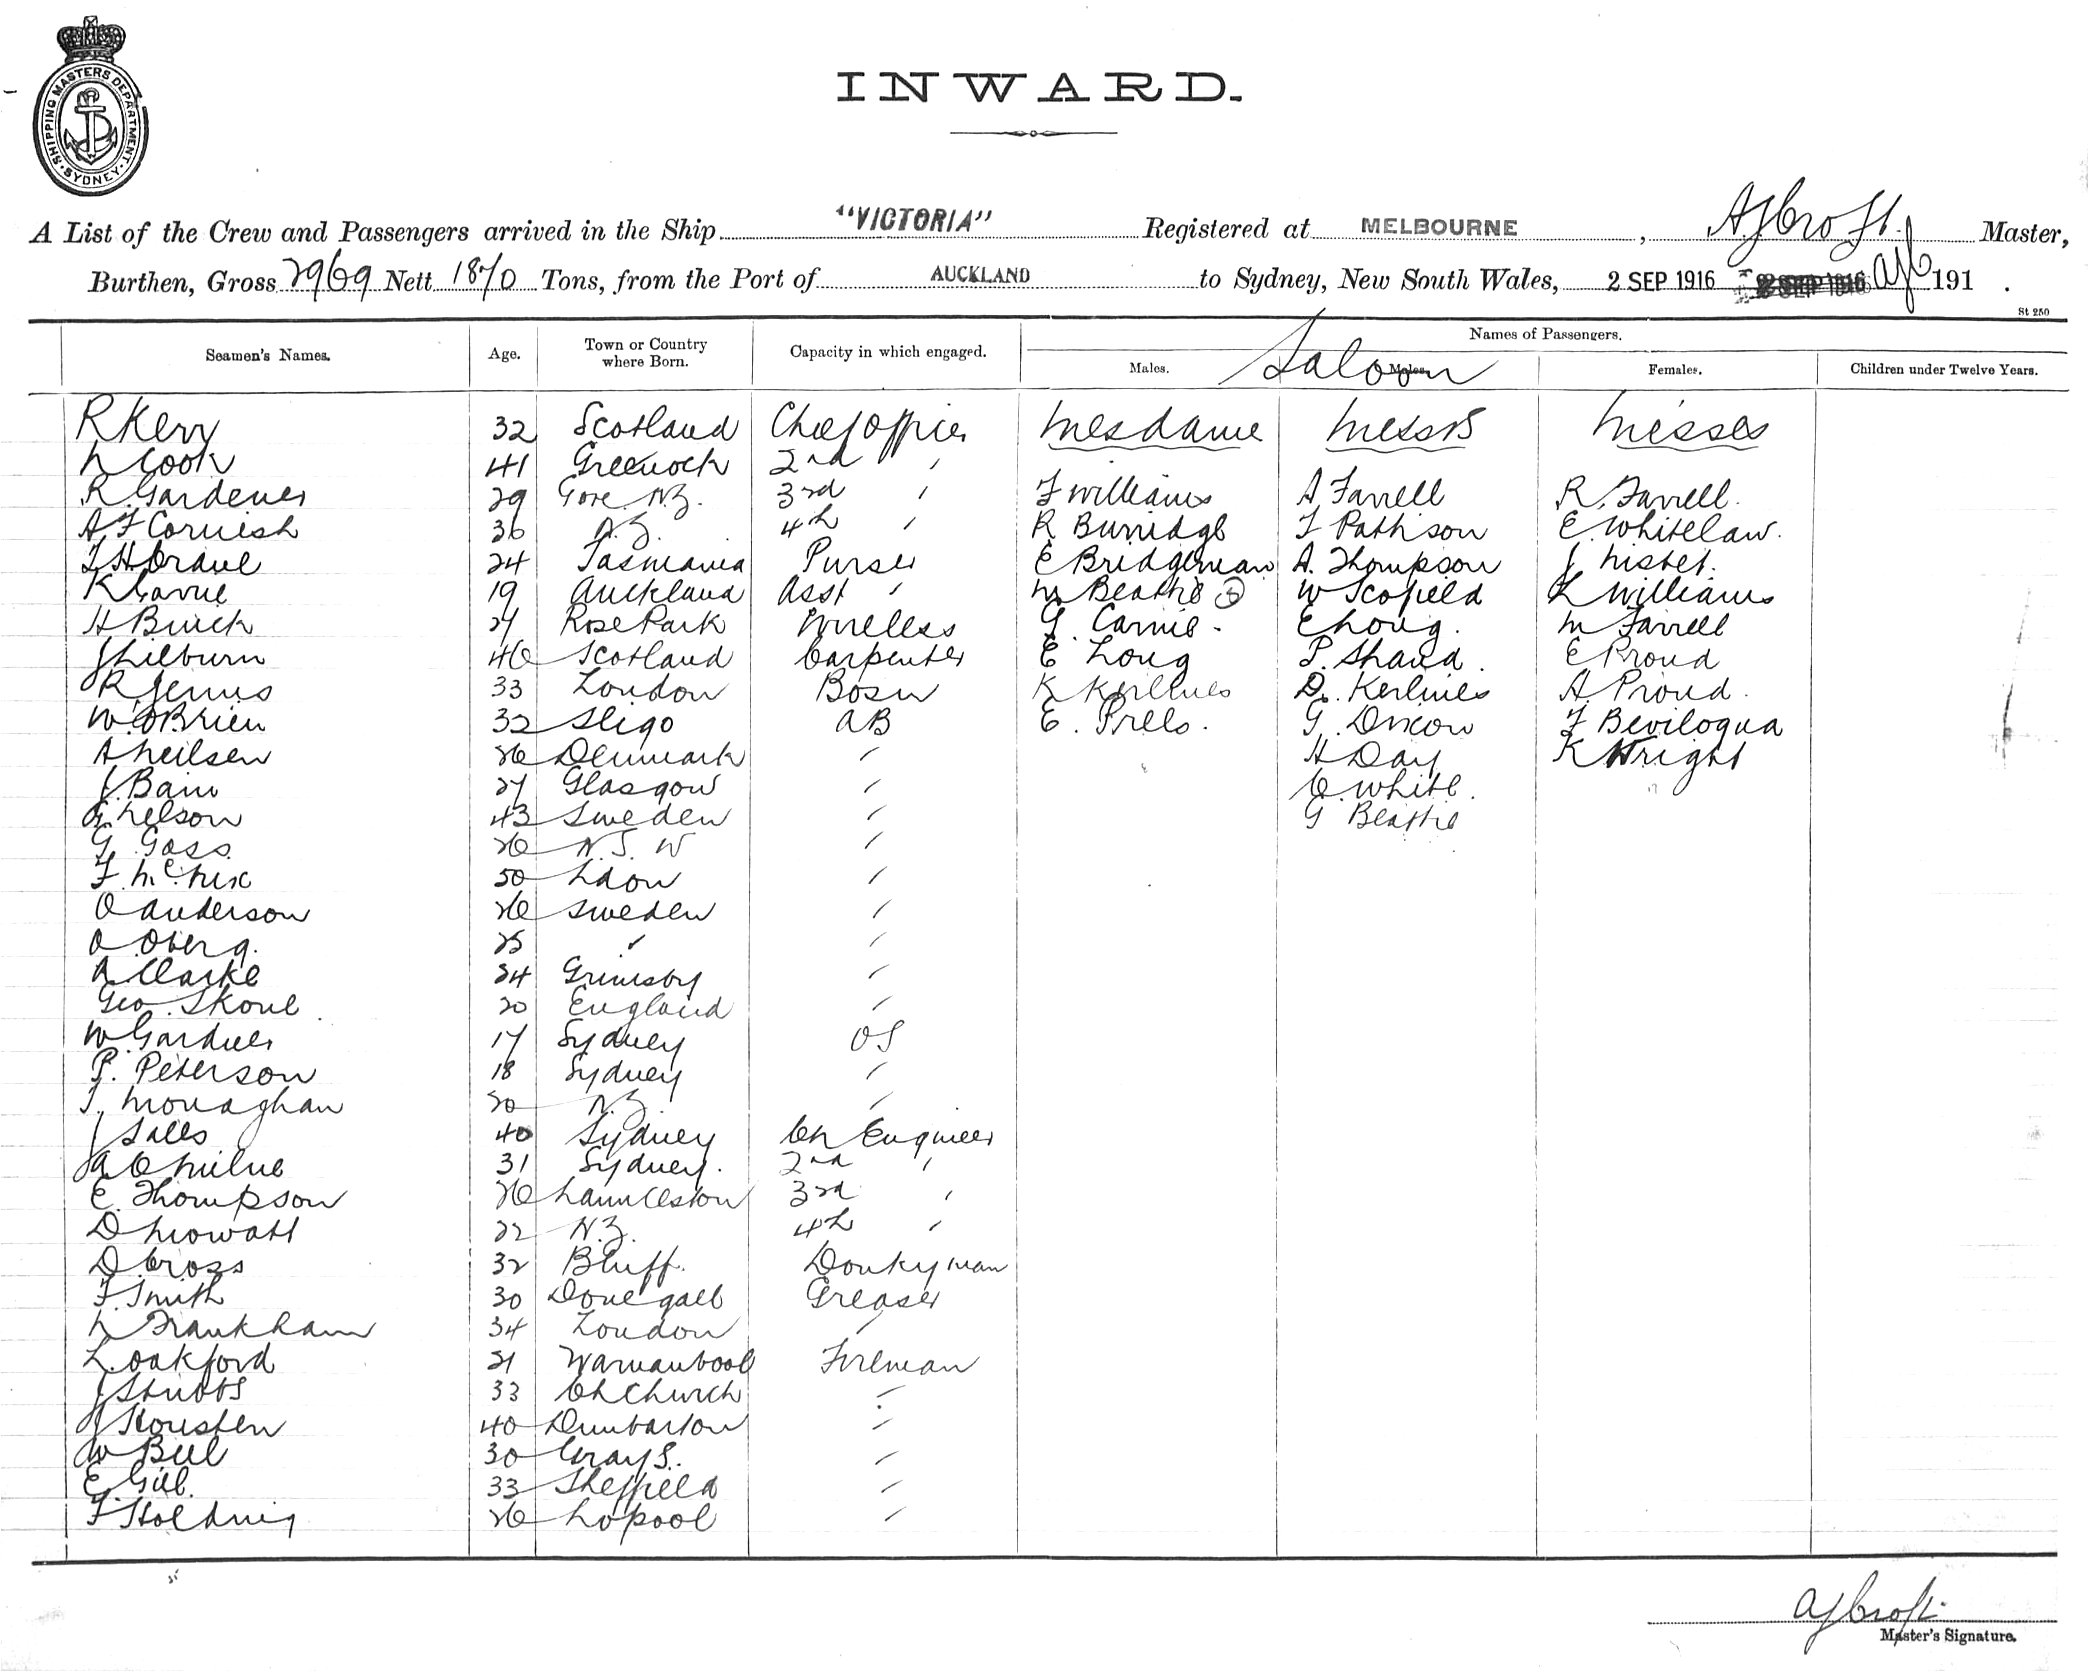 SHIPPING MASTERS DEPARTMENT SYDNEY
INWARD.
A List of the Crew and Passengers arrived in the Ship "VICTORIA" Registered at MELBOURNE, A J Croft. Master,
Burthen, Gross 2969 Nett 1870 Tons, from the Port of AUCKLAND to Sydney, New South Wales, 2 SEP 1916 191 .
St 250
Seamen's Names. Age. Town or Country where Born. Capacity in which engaged. Names of Passengers.
Males. Saloon Males. Females. Children under Twelve Years.
R Kerr 32 Scotland Chief Officer Mesdame Messrs Misses
L Cook 41 Greenock 2nd "
R. Gardener 29 Gore N.Z. 3rd " F Williams A Farrell R. Farrell.
A F Cornish 36 N.Z. 4th " R Burridge F Pattison E. Whitelaw.
24 Tasmania Purser E Bridgeman A. Thompson J Nisbet.
19 Auckland Asst " M Beattie W Scofield L Williams
H Buick 27 Rose Park Wireless G. Carnie. E Long. M Farrell
J Lilburn 46 Scotland Carpenter E Long P. Shand. E Proud
R Jenns 33 London Bosn K D. A. Proud.
W. O'Brien 32 Sligo AB E. G. Dixon F Beviloqua
A Neilsen 26 Denmark " H Day K Wright
J. Bain 27 Glasgow " C. White.
G Nelson 43 Sweden " G Beattie
G. Goss 26 N.S.W "
F. 50 Ldon "
O Anderson 26 Sweden "
O Oberg. 25 " "
A Clarke 24 Grimsby "
Geo. 20 England "
W. Gardner 17 Sydney OS
P. Peterson 18 Sydney "
T. Monaghan 20 N.Z. "
J Salls 40 Sydney Ch Engineer
A C Milne 31 Sydney. 2nd "
E. Thompson 26 Launceston 3rd "
D Mowatt 22 N.Z. 4th "
D Cross 32 Bluff. Donkyman
F. Smith 30 Donegall Greaser
L Frankham 34 London "
L. Oakford 21 Warnambool Fireman
J Stubbs 33 Ch Church "
J Housten 40 Dumbarton "
W Bell 30 Grays. "
E. Gill. 33 Sheffield "
F. Holding 26 Lopool "
A J Croft.
Master's Signature.